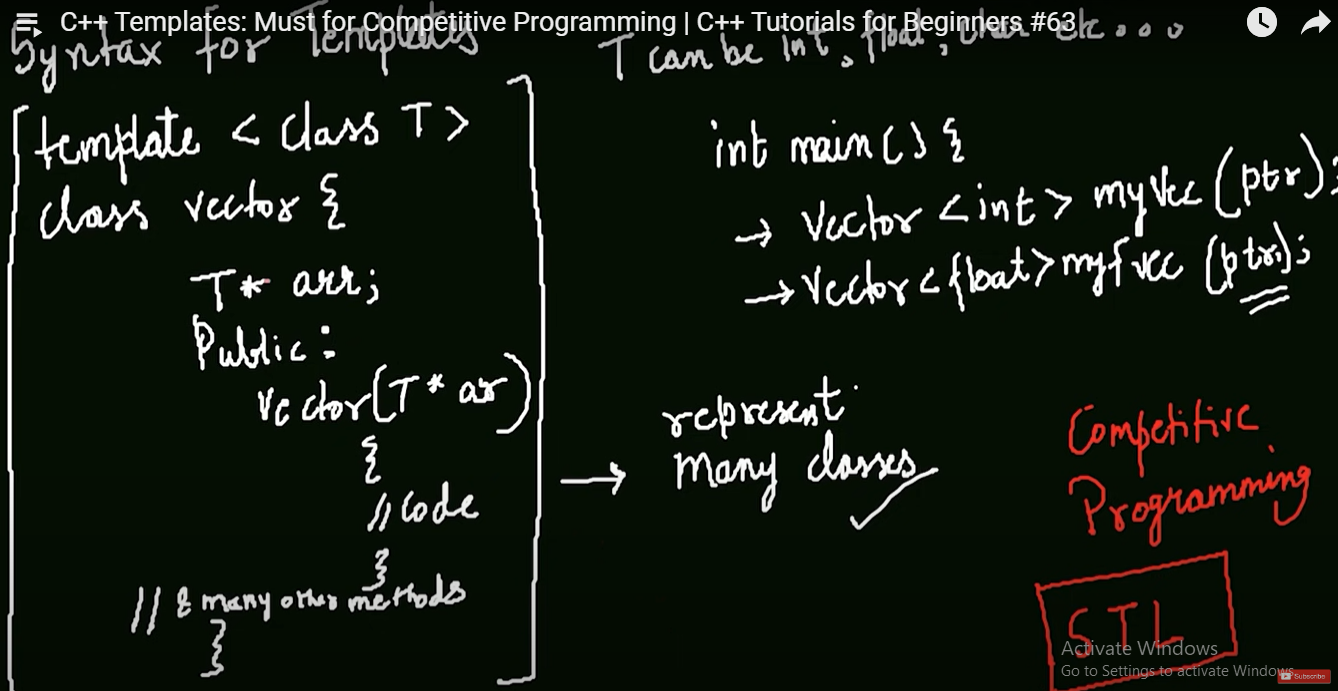 C++ Templates: Must for Competitive Programming | C++ Tutorials for Beginners #63
Syntax for Templates
template < class T >
class vector {
T* arr;
Public:
vector(T* ar)
{
// code
}
// & many other methods
}
T can be int, float, char etc...
int main() {
→ Vector <int> myvec (ptr);
→ Vector <float> myfvec (ptr1);
→ represent
many classes
Competitive
Programming
STL
Activate Windows
Go to Settings to activate Windows.
Subscribe